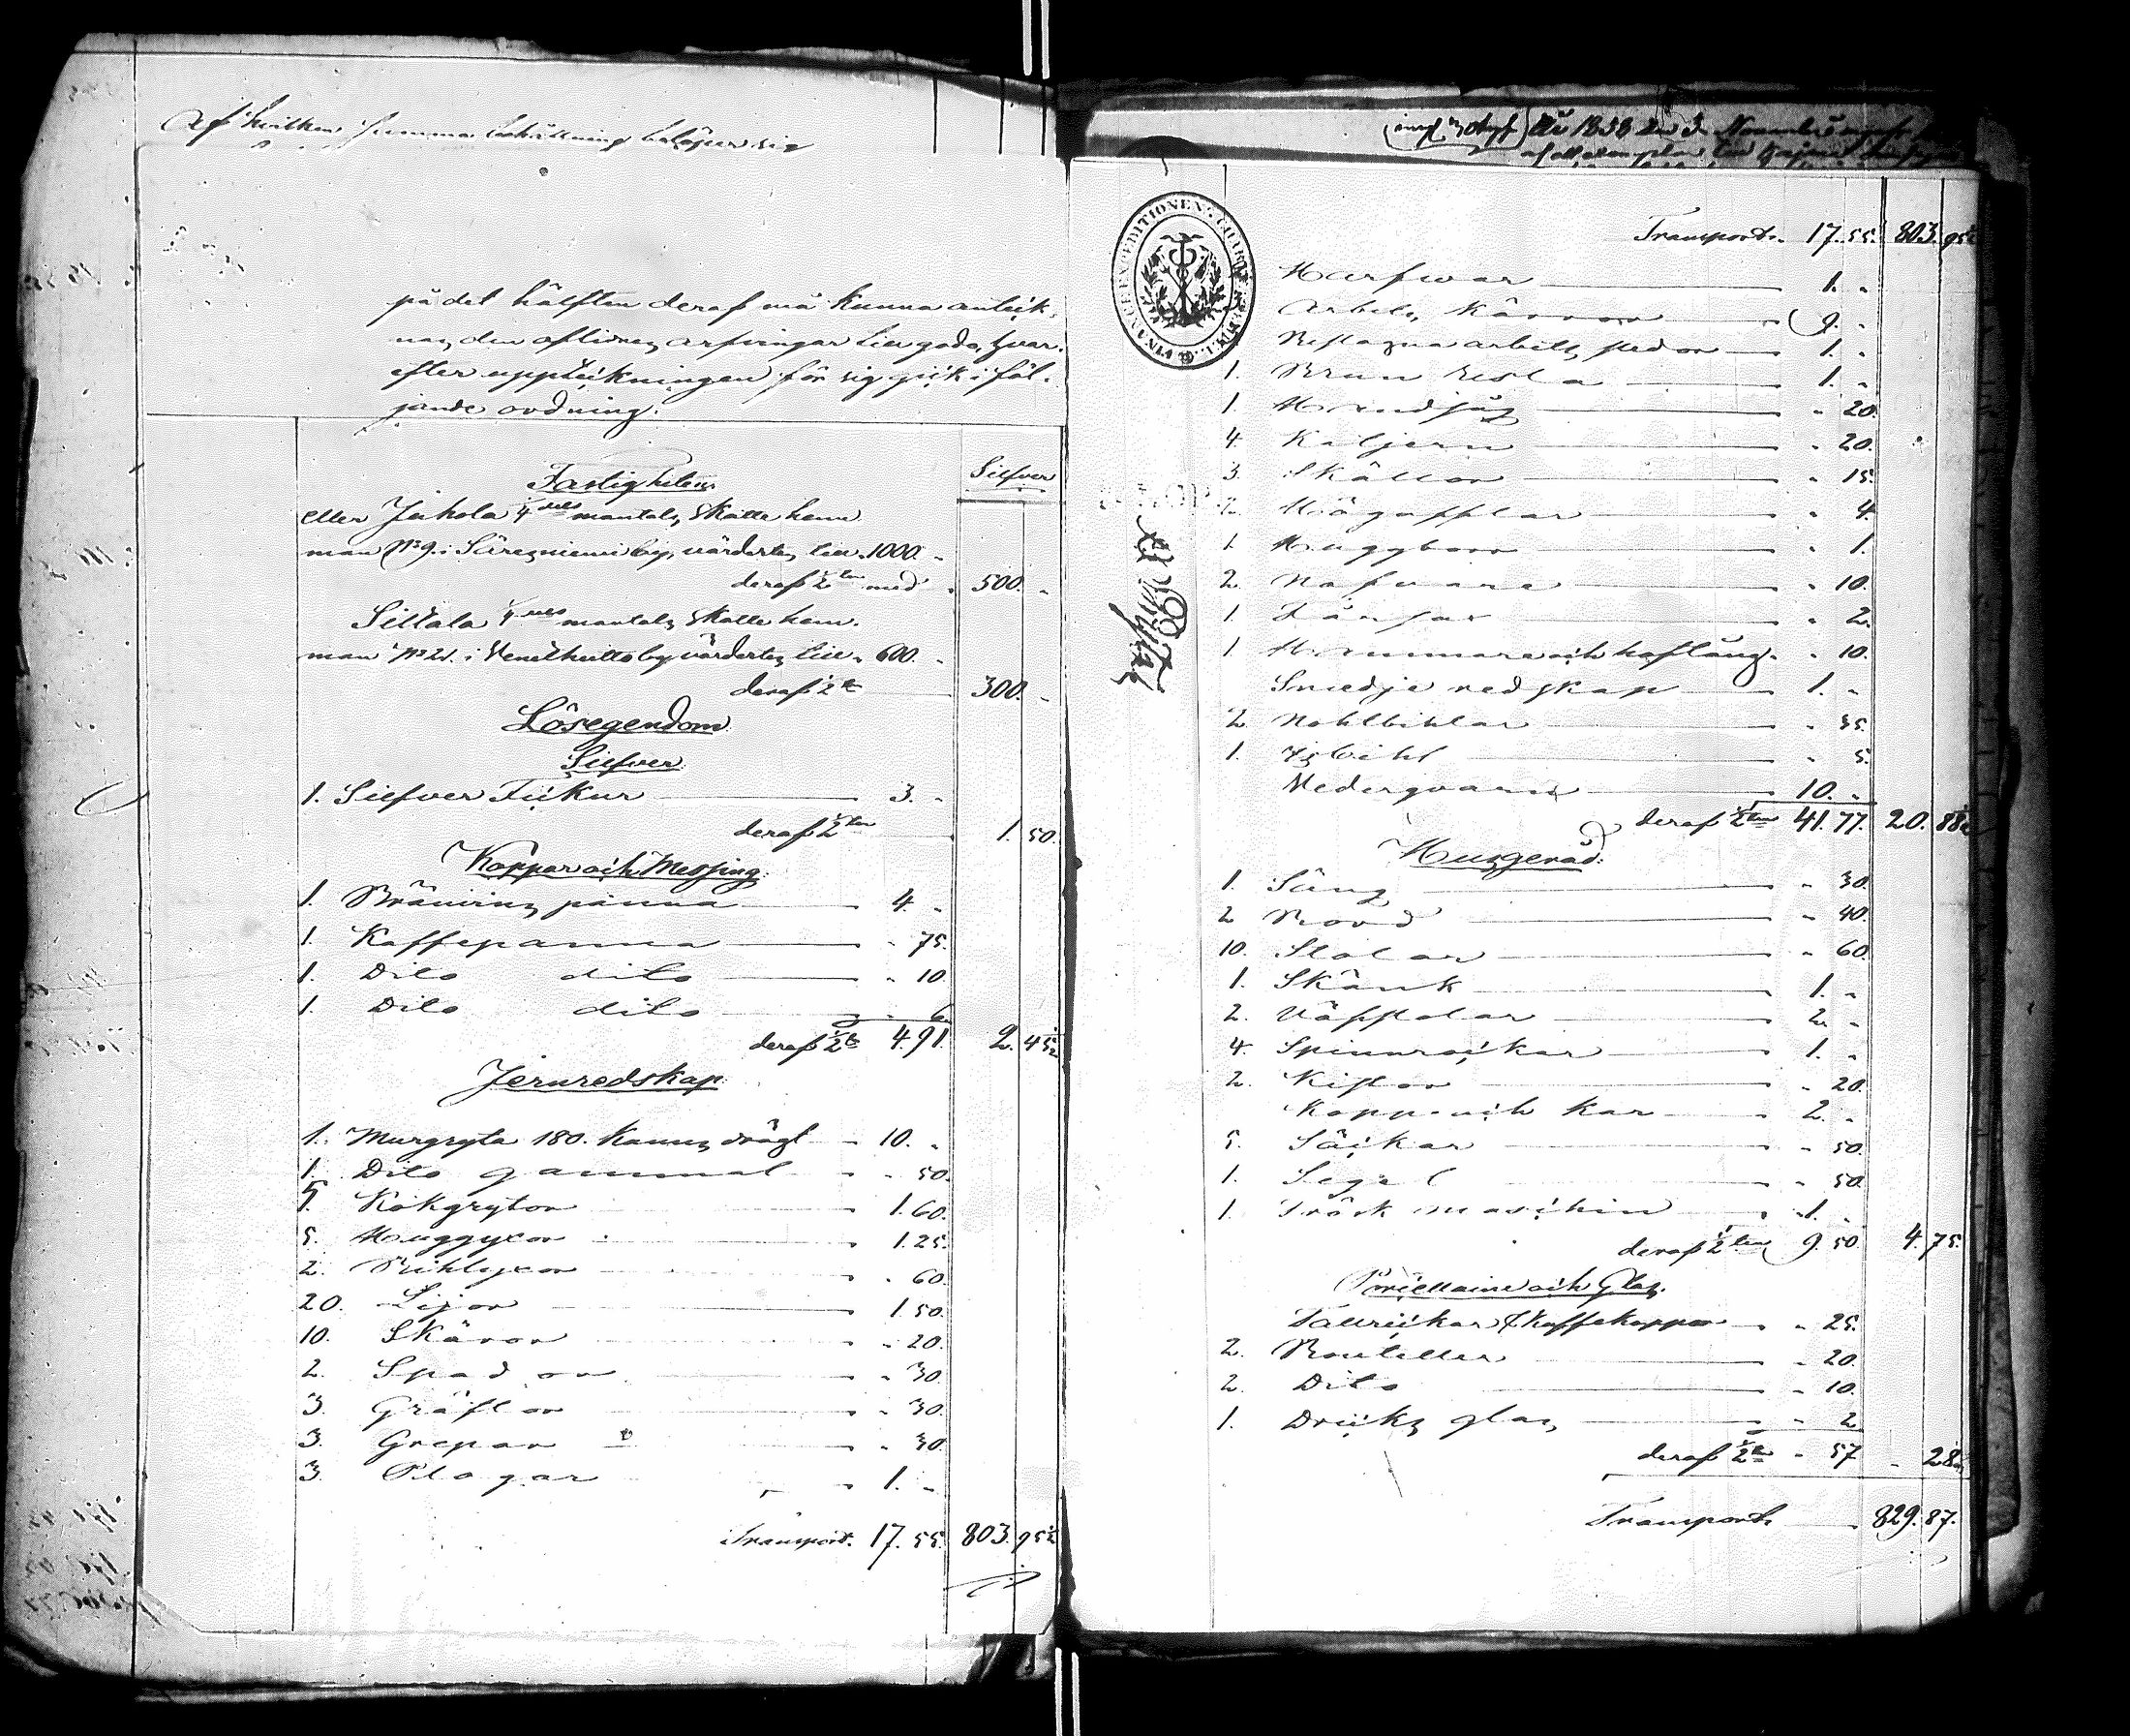 Af hvilken summa behållning belöper sig
på det hälften deraf må kunna anteck-
nas den aflidnes arfvingar till godo, hvar-
efter uppteckningen för sig gick i föl-
jande ordning.
Fastigheten Silfver
eller Jukola 1/4 dels mantals skatte hem-
man No 9. i Säresniemi by, värdertes till 1000. "
deraf 1/2 ten med 500. "
Siltala 1/4 dels mantals skatte hem-
man No 21. i Veneheitto by värdertes till 600. "
deraf 1/2 300. "
Lösegendom
Silfver
1. Silfver Fickur 3. "
deraf 1/2 ten 1. 50.
Koppar och Messing
1. Bränvins panna 4. "
1. Kaffepanna " 75.
1. Dito dito " 10
1. Dito dito " 6
deraf 1/2 4.91. 2. 45 1/2
Jernredskap
1. Murgryta 180. kanns drägt 10. "
1. Dito gammal " 50.
5 Kokgrytor 1.60.
5. Huggyxor 1.25.
2. Bihlyxor " 60
20. Lijor 1.50.
10. Skäror " 20.
2. Spador " 30.
3. Gräftor " 30.
3. Grepar " 30
3. Plogar 1. "
Transport. 17. 55. 803. 95 1/2
År 1838 den 3. November
Transport. 17. 55. 803. 95 1/2
FINANCE EXPEDITIONEN
Harfvar 1. "
Arbets kärror 9. "
Beslagna arbets slädor 1. "
1. Brun 1. "
1. Handsåg " 20.
4. Kiljern " 20.
3. Skällor " 15.
2. Högafflar " 4.
1. " 1.
2. Nafvare " 10.
1. " 2.
1 Hammare och hoftång " 10.
Smedje redskap 1. "
2. " 35.
1. Isbihl " 5.
Vederqvarn 10. "
deraf 1/2 ten 41. 77. 20. 88 1/2
Husgeråd.
1. Säng " 30.
2 Bord " 40.
10. Stolar " 60.
1. Skänk 1. "
2. Väfstolar 2. "
4. Spinnrockar 1. "
2. Kistor " 20.
Kopp och kar 2. "
5. Säckar " 50.
1. Segel " 50
1. Tröskmaschin 1. "
deraf 1/2 ten 9. 50 4. 75.
Porcellaine och Glas.
Tallrickar & Kaffekoppar " 25.
2. Bouteller " 20.
2. Dito " 10.
1. Dricks glas " 2
deraf 1/2 " 57 " 28 1/2
Transport. 829. 87.